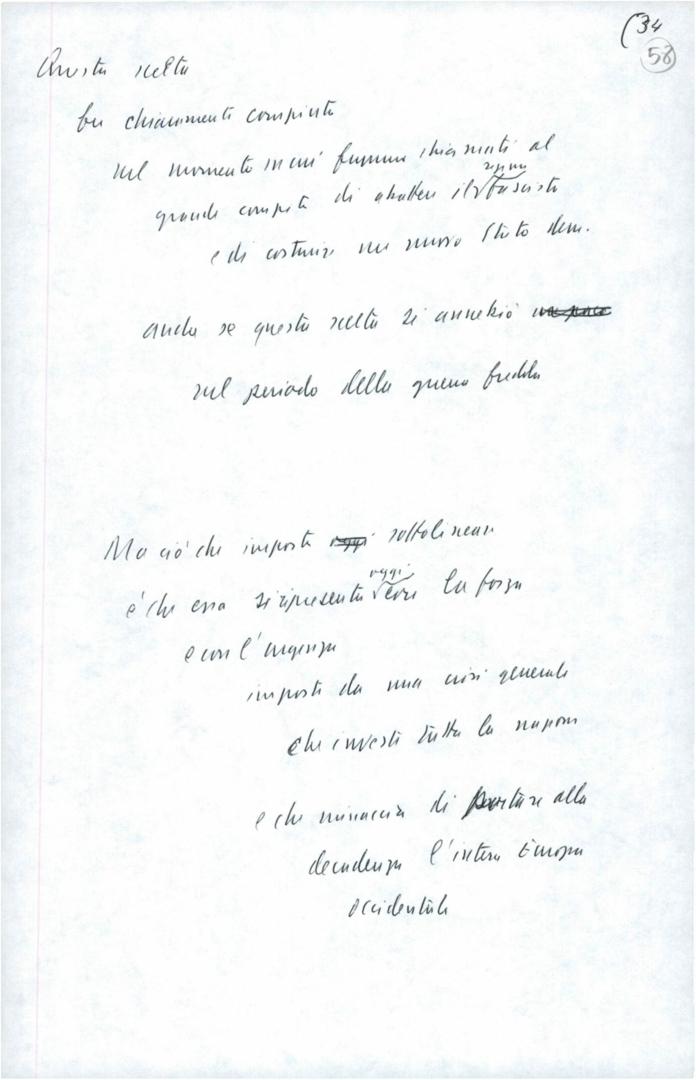 (34
58
Questa scelta
fu chiaramente compiuta
nel momento in cui fummo chiamati al
regime
grande compito di abattere il fascista
e di costruire un nuovo Stato dem.
anche se questa scelta si annebbiò
nel periodo della guerra fredda
Ma ciò che importa oggi sottolineare
oggi
è che essa si ripresenta con la forza
e con l'urgenza
imposte da una crisi generale
che investe tutta la nazione
e che minaccia di portare alla
decadenza l'intera Europa
occidentale